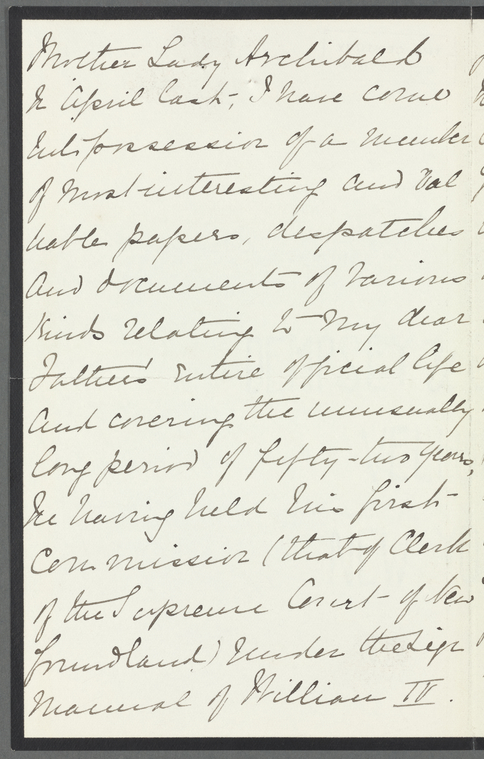 Mother Lady Archibald
in April last, I have come
into possession of a number
of most interesting and val
uable papers, despatches
and documents of various
kinds relating to my dear
Father's entire official life
and covering the unusually
long period of fifty-two years,
He having held his first
Commission (that of Clerk
of the Supreme Court of New
foundland) under the Sign
Manual of William IV.